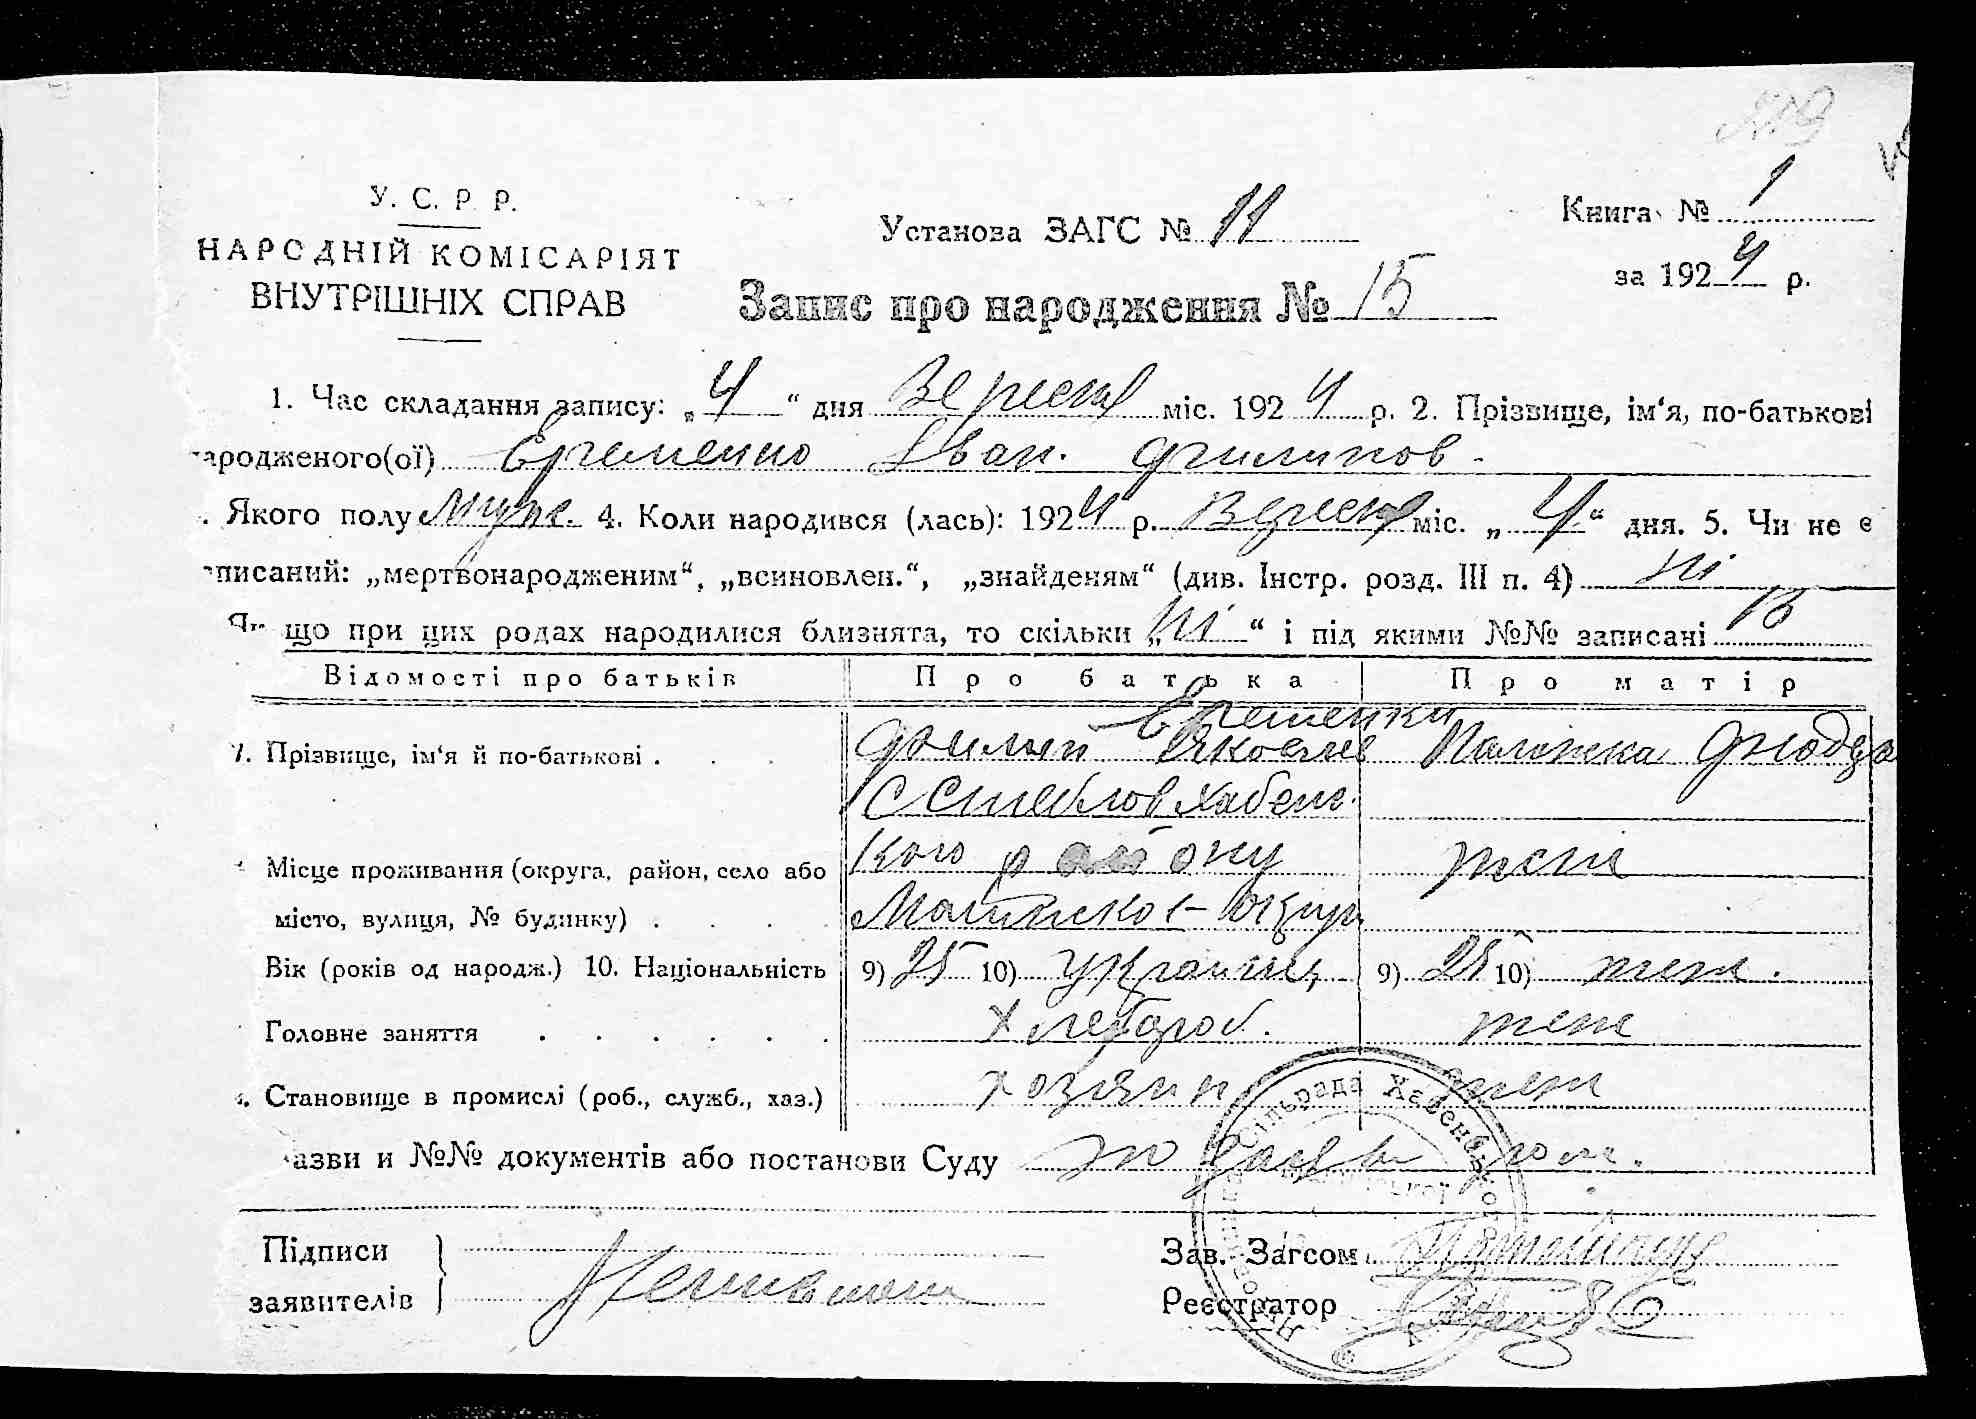 229
У. С. Р. Р.
НАРОДНІЙ КОМІСАРІЯТ
ВНУТРІШНІХ СПРАВ
Установа ЗАГС № 11
Книга № 1
за 1924 р.
Запис про народження № 15
1. Час складання запису: „4“ дня Вересня міс. 1924 р. 2. Прізвище, ім‘я, по-батькові
ародженого(ої) Еременко Іван. Филипов.
. Якого полу Муж. 4. Коли народився (лась): 1924 р. Вересня міс. „4“ дня. 5. Чи не є
писаний: „мертвонародженим“, „всиновлен.“, „знайденям“ (див. Інстр. розд. III п. 4) ні
Як що при цих родах народилися близнята, то скільки „ні“ і під якими №№ записані
Відомості про батьків Про батька Про матір
Еременки
7. Прізвище, ім‘я й по-батькові . . . Филип Яковлев Палажка
С Стеблов Хабенс
Місце проживання (округа, район, село або кого району теж
місто, вулиця, № будинку) . . . . Малинской округи
Вік (років од народж.) 10. Національність 9) 25 10) украинц 9) 25 10) теж.
Головне заняття . . . . . . Хлебороб. теж
Становище в промислі (роб., служб., хаз.) хозяин теж
азви и №№ документів або постанови Суду
Підписи
заявителів
Неграмотн
Зав. Загсом
Реєстратор
Сільрада Хабенського